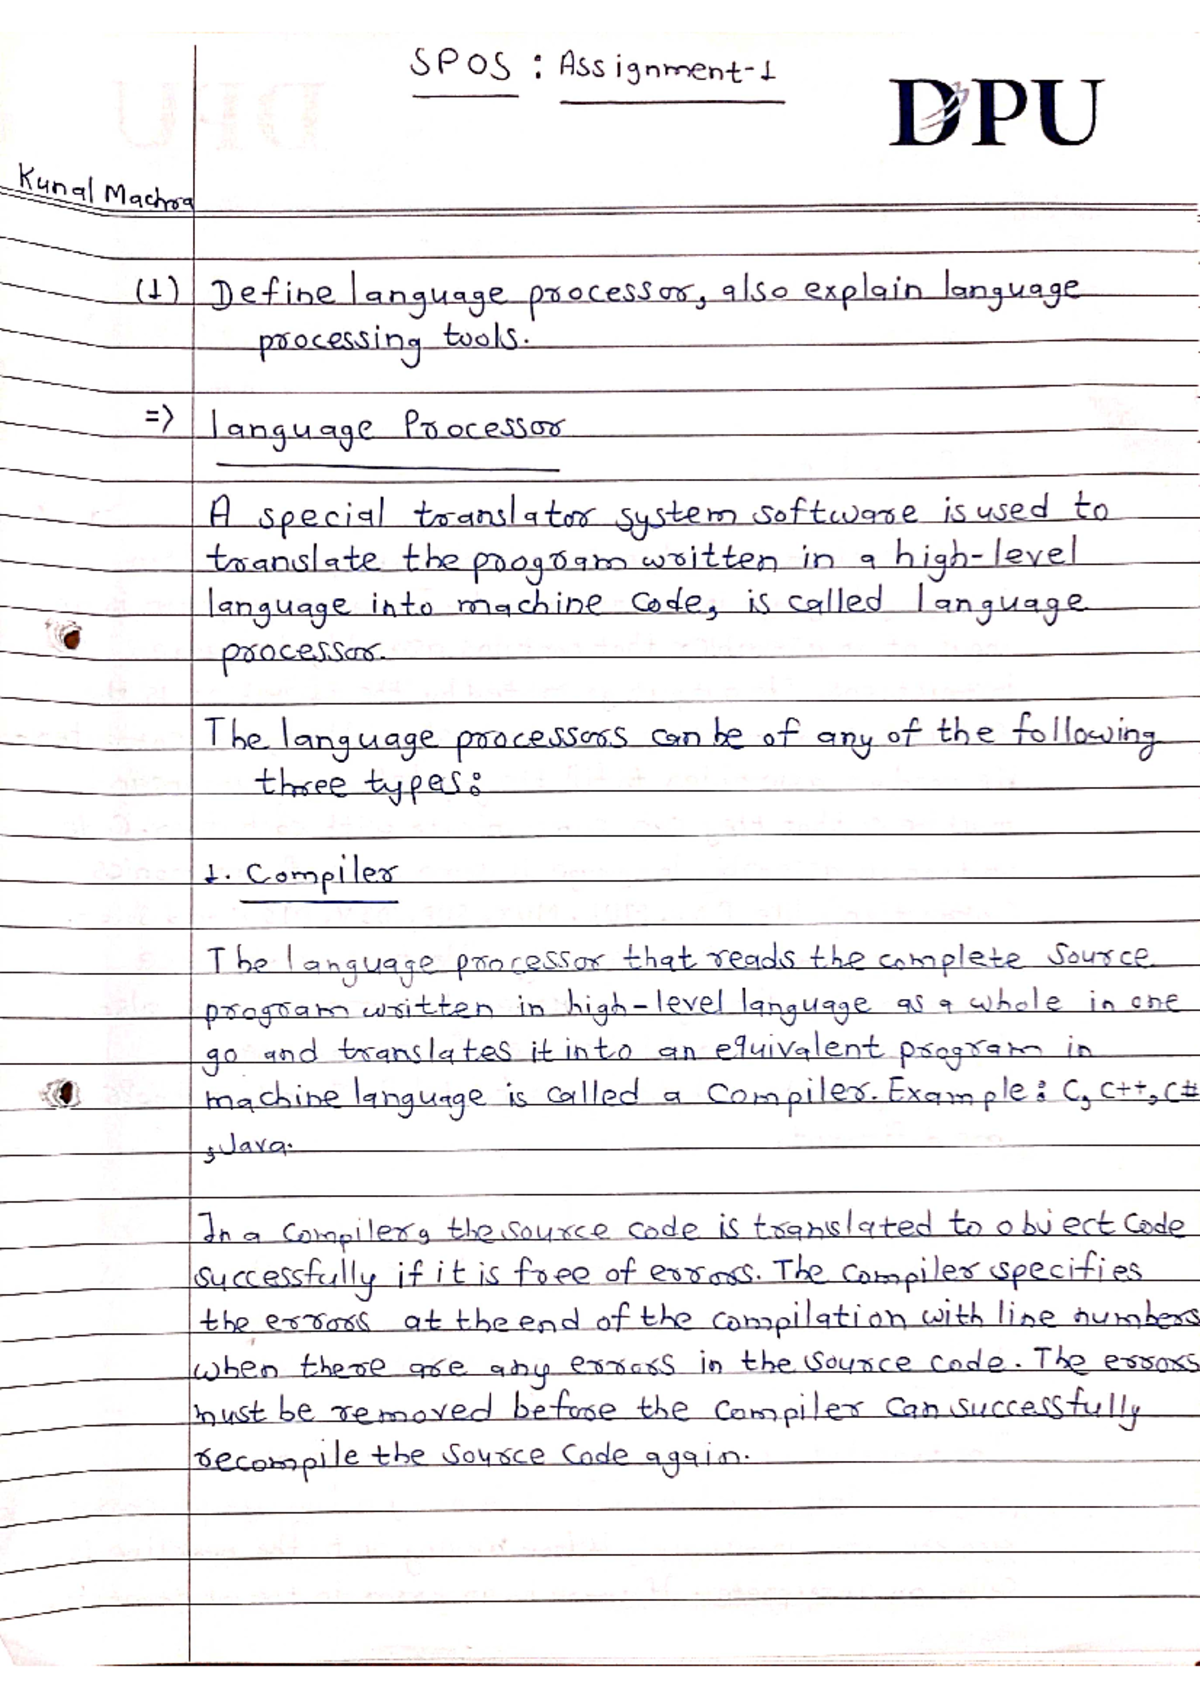 SPOS : Assignment-1
DPU
Kunal Machra
(1) Define language processor, also explain language
processing tools.
=> Language Processor
A special translator system software is used to
translate the program written in a high-level
language into machine code, is called language
processor.
The language processors can be of any of the following
three types:
1. Compiler
The language processor that reads the complete source
program written in high-level language as a whole in one
go and translates it into an equivalent program in
machine language is called a Compiler. Example: C, C++, C#
, Java.
In a compiler, the source code is translated to object code
successfully if it is free of errors. The compiler specifies
the errors at the end of the compilation with line numbers
when there are any errors in the source code. The errors
must be removed before the compiler can successfully
recompile the source code again.